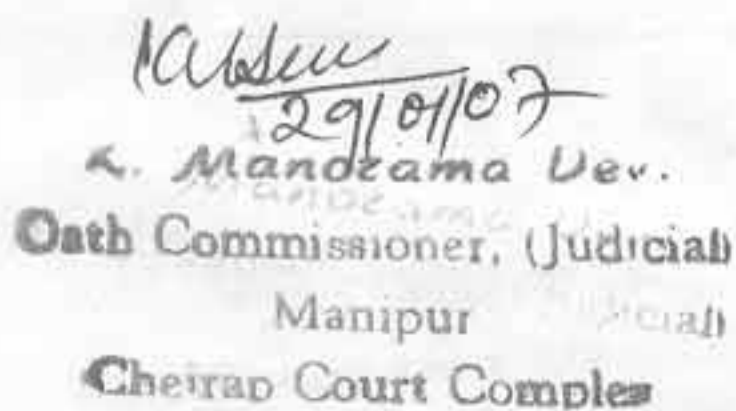 29/01/07
K. Manorama Dev.
Oath Commissioner, (Judicial)
Manipur
Cheirap Court Complex